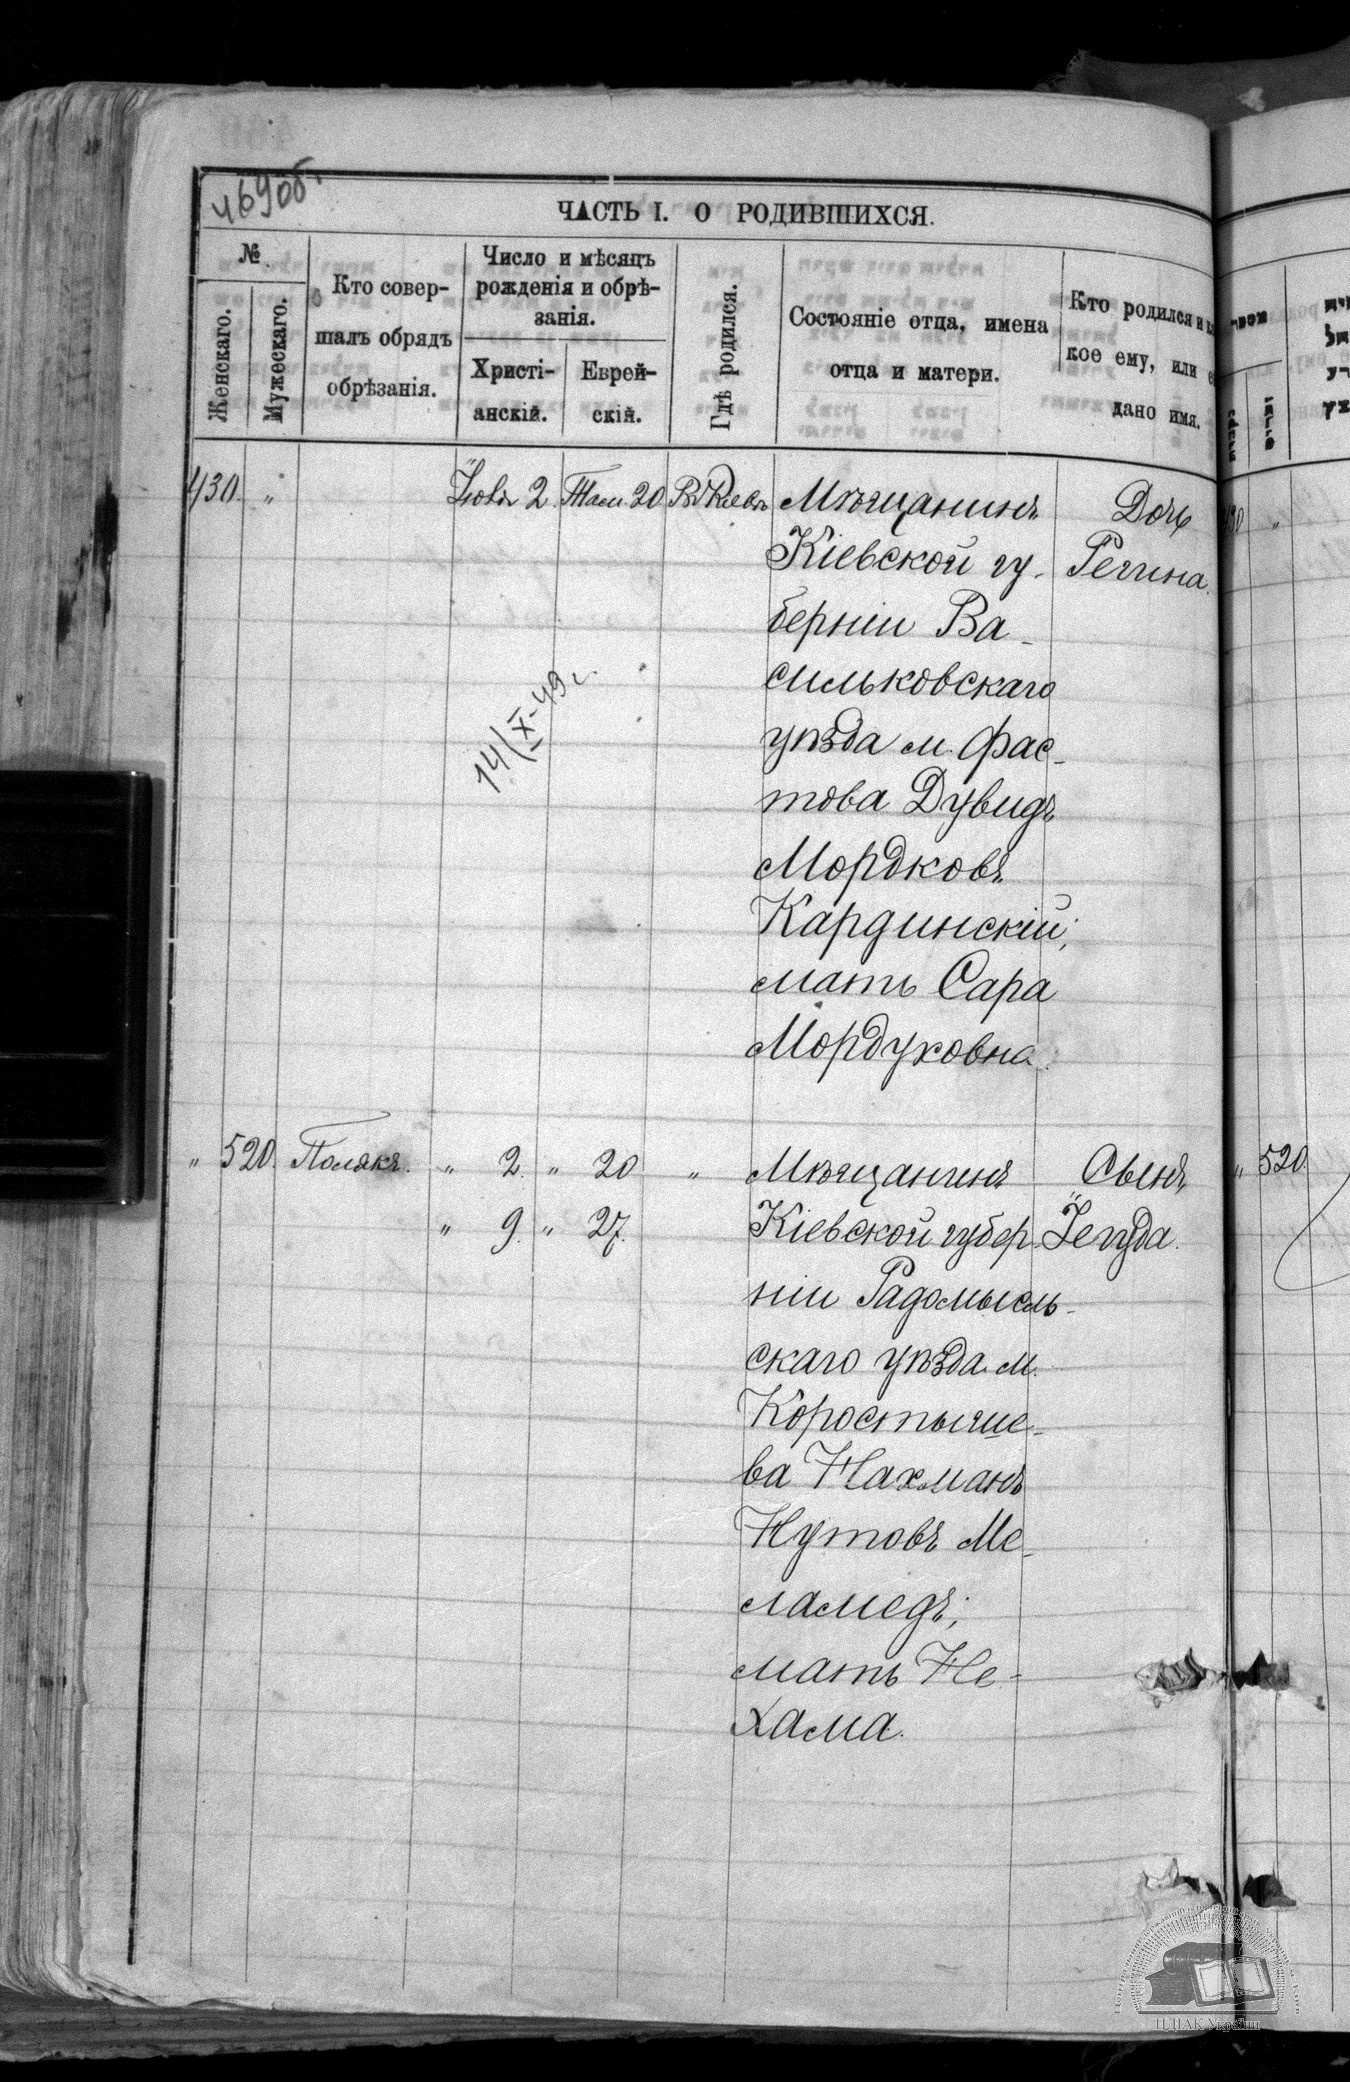 469об.
ЧАСТЬ I. О РОДИВШИХСЯ.
№
Женскаго.
Мужескаго.
Кто совер-
шалъ обрядъ
обрѣзанія.
Число и мѣсяцъ
рожденія и обрѣ-
занія.
Христі-
анскій.
Еврей-
скій.
Гдѣ родился.
Состояніе отца, имена
отца и матери.
Кто родился и ка
кое ему, или е
дано имя.
430. „ Іюля 2. Там. 20 Въ Кіевѣ Мѣщанинъ Дочь 430 „
Кіевской гу- Регина.
берніи Ва-
сильковскаго
уѣзда м. Фас-
това Дувидъ
Мордковъ
Кардинскій;
мать Сара
Мордуховна.
14/X-49 г.
„ 520. Полякъ. „ 2. „ 20 „ Мѣщанинъ Сынъ „ 520.
„ 9. „ 27. Кіевской губер- Іегуда.
ніи Радомысль-
скаго уѣзда м.
Коростыше-
ва Нахманъ
Нутовъ Ме-
ламедъ;
мать Не-
хама.
ЦДІАК України